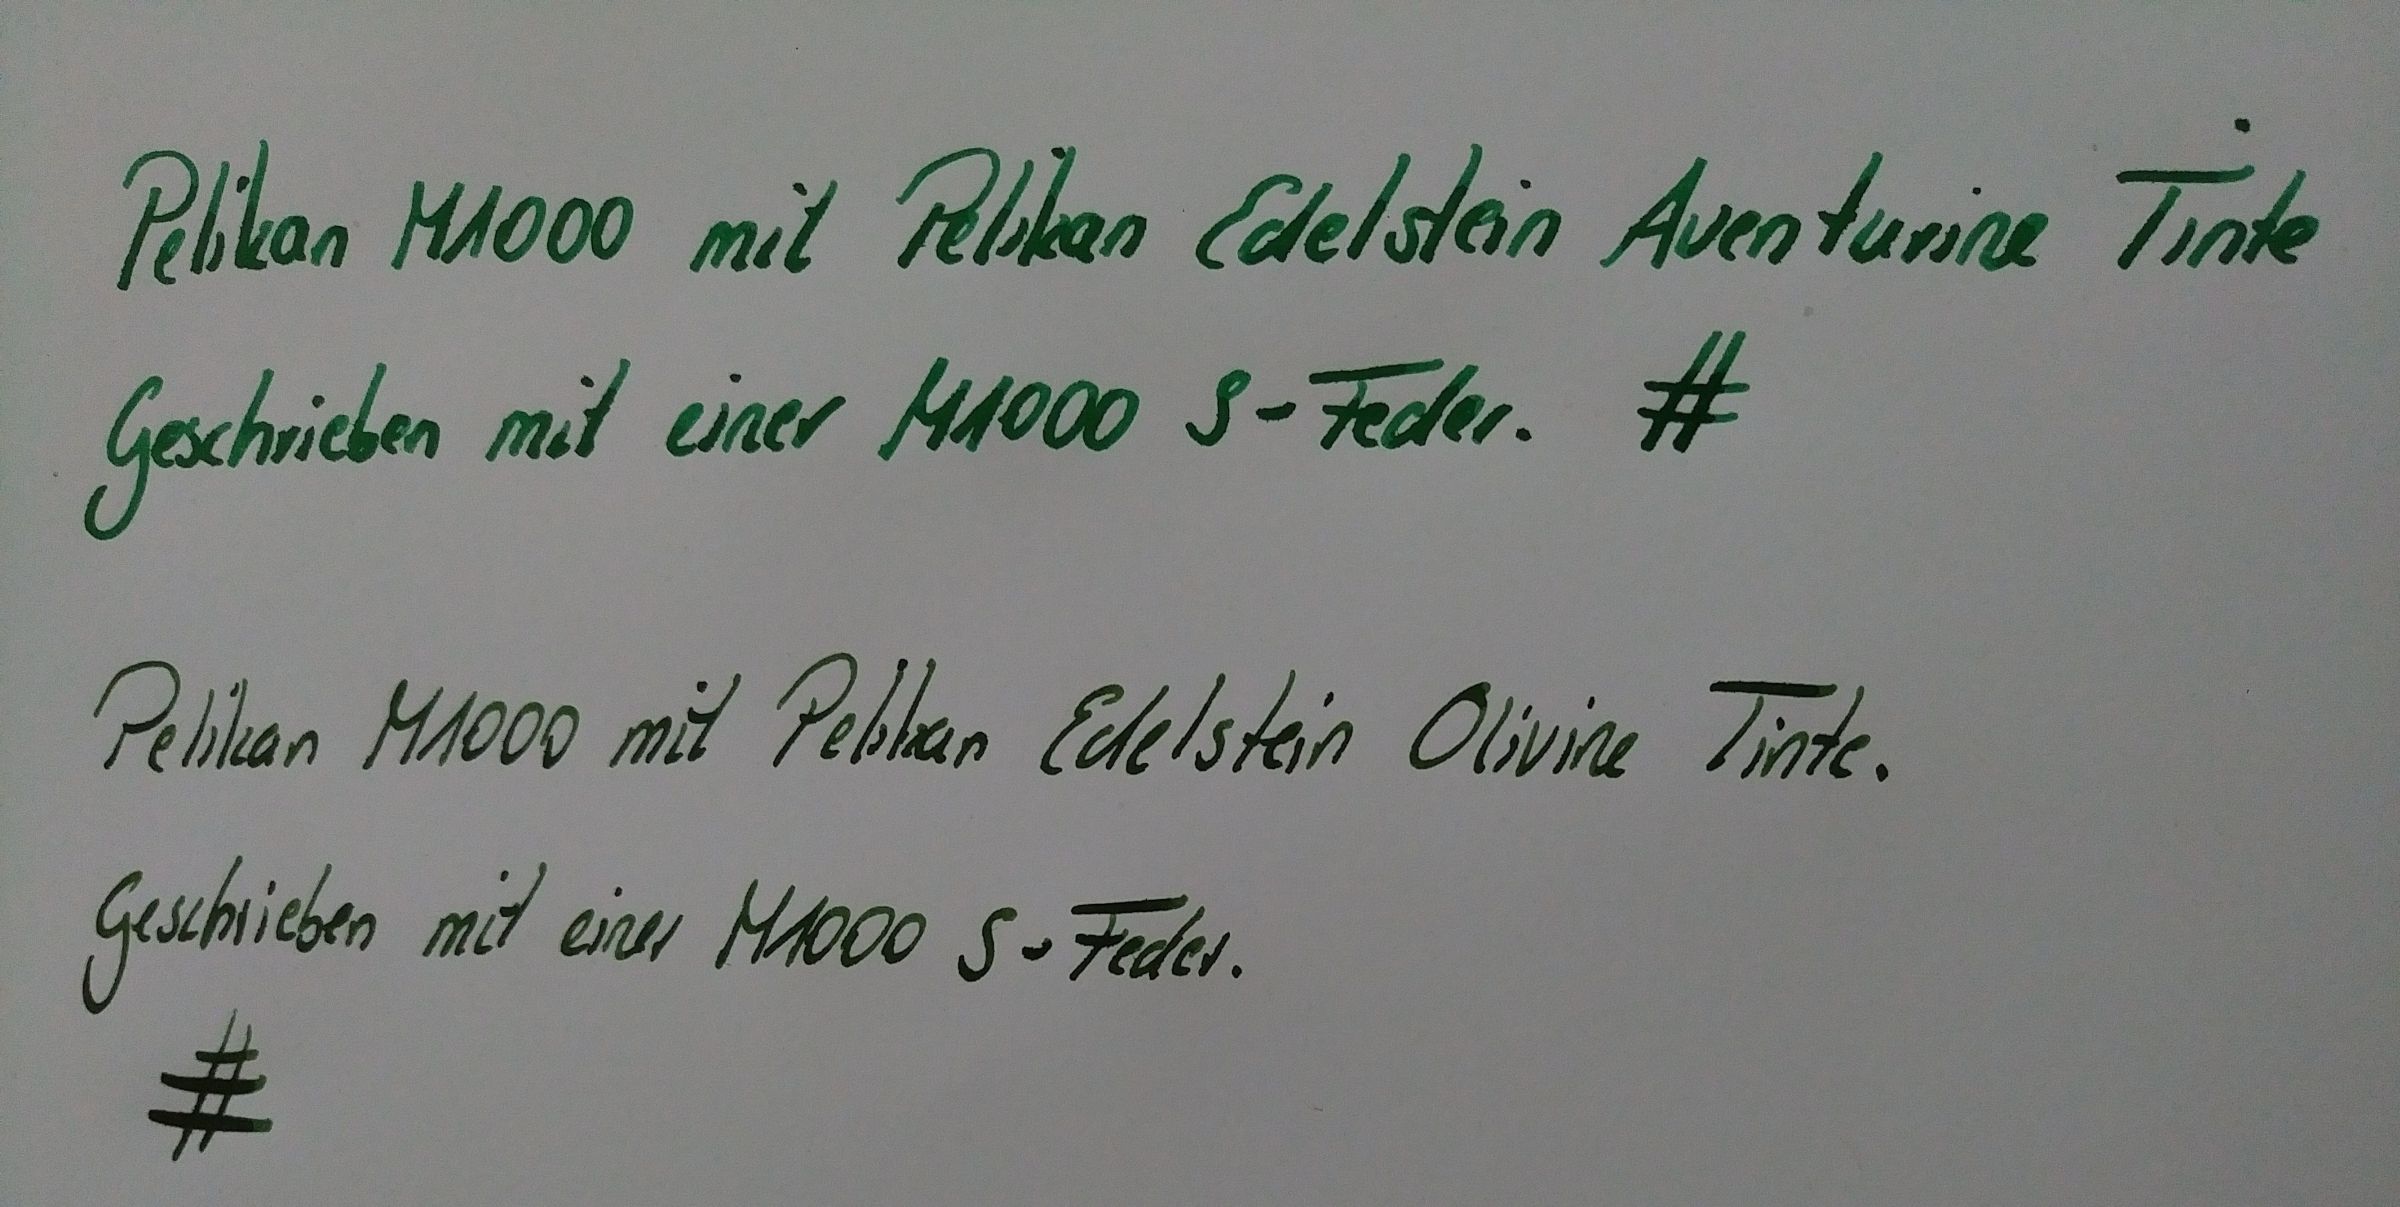 Pelikan M1000 mit Pelikan Edelstein Aventurine Tinte
Geschrieben mit einer M1000 S-Feder. #
Pelikan M1000 mit Pelikan Edelstein Olivine Tinte.
Geschrieben mit einer M1000 S-Feder.
#